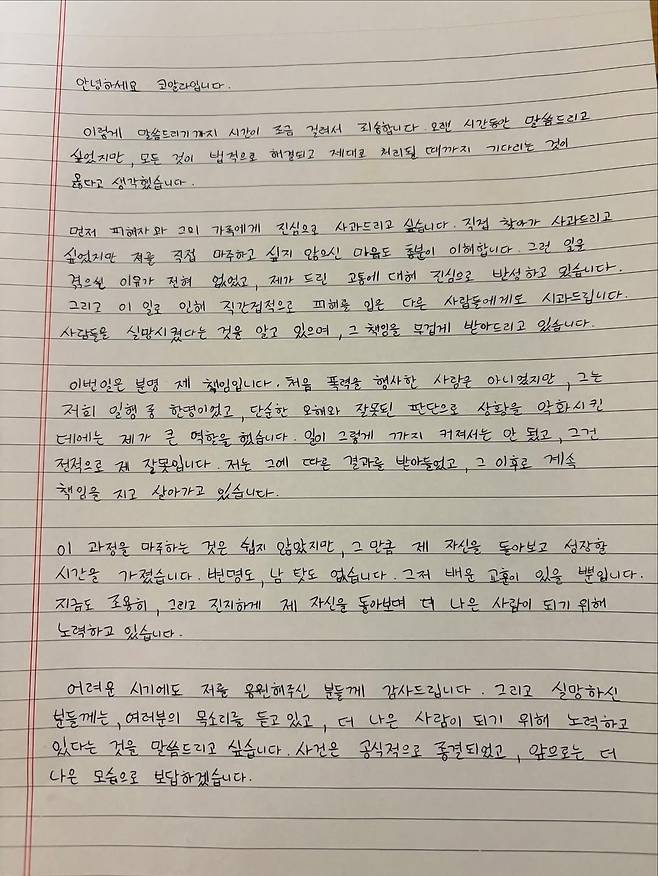 안녕하세요 코알라입니다.
이렇게 말씀드리기까지 시간이 조금 걸려서 죄송합니다. 오랜 시간동안 말씀드리고
싶었지만, 모든 것이 법적으로 해결되고 제대로 처리될 때까지 기다리는 것이
옳다고 생각했습니다.
먼저 피해자와 그의 가족에게 진심으로 사과드리고 싶습니다. 직접 찾아가 사과드리고
싶었지만 저를 직접 마주하고 싶지 않으신 마음도 충분이 이해합니다. 그런 일을
겪으실 이유가 전혀 없었고, 제가 드린 고통에 대해 진심으로 반성하고 있습니다.
그리고 이 일로 인해 직간접적으로 피해를 입은 다른 사람들에게도 사과드립니다.
사람들을 실망시켰다는 것을 알고 있으며, 그 책임을 무겁게 받아드리고 있습니다.
이번일은 분명 제 책임입니다. 처음 폭력을 행사한 사람은 아니었지만, 그는
저희 일행 중 한명이었고, 단순한 오해와 잘못된 판단으로 상황을 악화시킨
데에는 제가 큰 역할을 했습니다. 일이 그렇게 까지 커져서는 안 됐고, 그건
전적으로 제 잘못입니다. 저는 그에 따른 결과를 받아들었고, 그 이후로 계속
책임을 지고 살아가고 있습니다.
이 과정을 마주하는 것은 쉽지 않았지만, 그 만큼 제 자신을 돌아보고 성장한
시간을 가졌습니다. 변명도, 남 탓도 없습니다. 그저 배운 교훈이 있을 뿐입니다.
지금도 조용히, 그리고 진지하게 제 자신을 돌아보며 더 나은 사람이 되기 위해
노력하고 있습니다.
어려운 시기에도 저를 응원해주신 분들께 감사드립니다. 그리고 실망하신
분들께는, 여러분의 목소리를 듣고 있고, 더 나은 사람이 되기 위해 노력하고
있다는 것을 말씀드리고 싶습니다. 사건은 공식적으로 종결되었고, 앞으로는 더
나은 모습으로 보답하겠습니다.